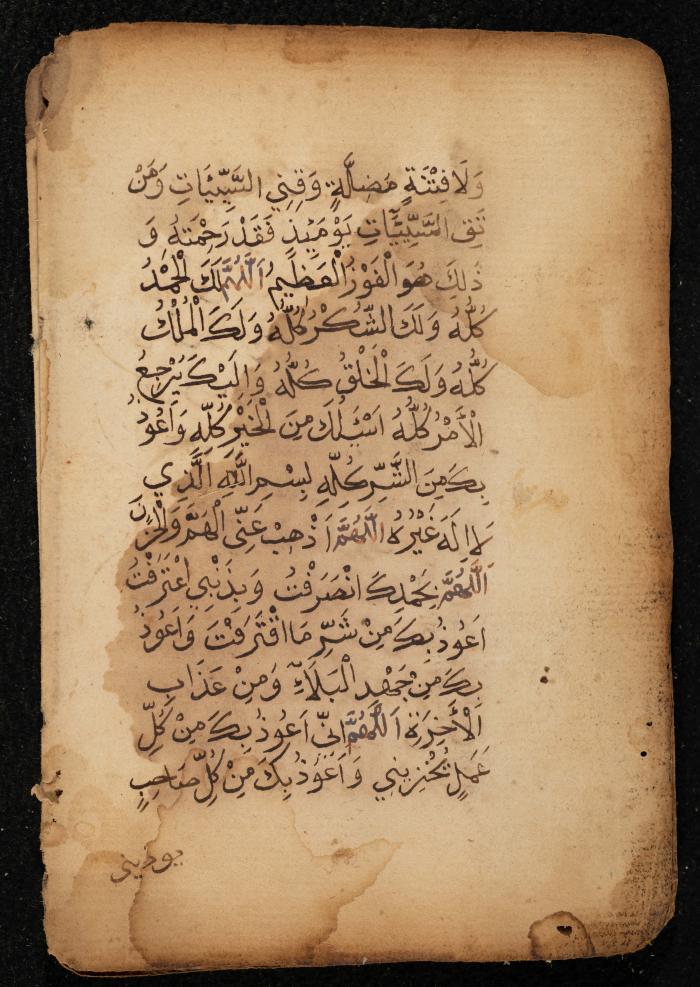 وَلَا فِتْنَةٍ مَضِلَّةٍ وَقِنِي السَّيِّئَاتِ وَمَنْ
تَقِ السَّيِّئَاتِ يَوْمَئِذٍ فَقَدْ رَحِمْتَهُ وَ
ذٰلِكَ هُوَ الْفَوْزُ الْعَظِيمُ اَللّٰهُمَّ لَكَ الْحَمْدُ
كُلُّهُ وَلَكَ الشُّكْرُ كُلُّهُ وَلَكَ الْمُلْكُ
كُلُّهُ وَلَكَ الْخَلْقُ كُلُّهُ وَاِلَيْكَ يَرْجِعُ
الْأَمْرُ كُلُّهُ اَسْئَلُكَ مِنَ الْخَيْرِ كُلِّهِ وَاَعُوذُ
بِكَ مِنَ الشَّرِّ كُلِّهِ بِسْمِ اللّٰهِ الَّذِي
لَا اِلَهَ غَيْرُهُ اَللّٰهُمَّ اَذْهِبْ عَنِّي الْهَمَّ وَالْحَزَنَ
اَللّٰهُمَّ بِحَمْدِكَ انْصَرَفْتُ وَبِذَنْبِي اعْتَرَفْتُ
اَعُوذُ بِكَ مِنْ شَرِّ مَا اقْتَرَفْتُ وَاَعُوذُ
بِكَ مِنْ جَهْدِ الْبَلَاءِ وَمِنْ عَذَابِ
الْأٰخِرَةِ اَللّٰهُمَّ اِنِّي اَعُوذُ بِكَ مِنْ كُلِّ
عَمَلٍ يُخْزِينِي وَاَعُوذُ بِكَ مِنْ كُلِّ صَاحِبٍ
يوذيني